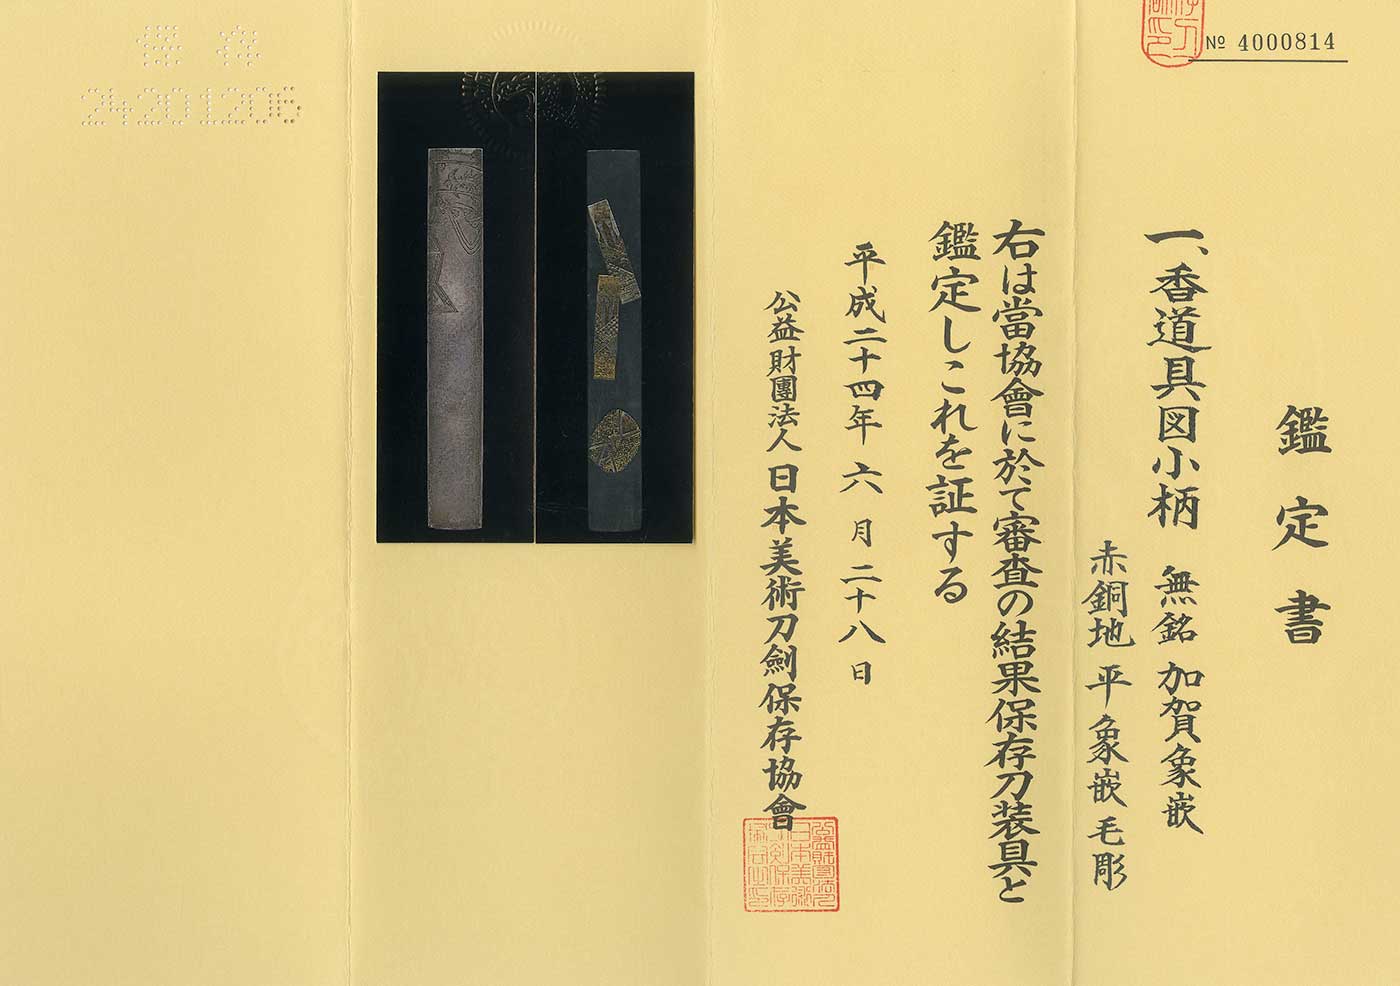 № 4000814
鑑定書
一、香道具図小柄 無銘 加賀象嵌
赤銅地 平象嵌 毛彫
右は當協會に於て審査の結果保存刀装具と
鑑定しこれを証する
平成二十四年六月二十八日
公益財團法人 日本美術刀劍保存協會
保存
24201206